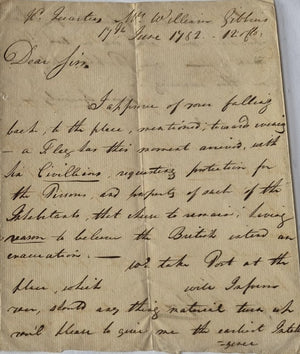 Hd. Quarters Mrs. William Gibbons
17th June 1782 - 12 Oc.
Dear Sir.
I approve of your falling
back, to the place, mentioned; toward evening
- a Flag has this moment arrived, with
six Civillians, requesting protection for
the Persons, and property of such of the
Inhabitants, that chuse to remain; having
reason to believe the British intend an
evacuation. -
We take Post at the
place, which will Inform
you, should any thing material turn up
you will please to give me the earliest Intelli
=gence